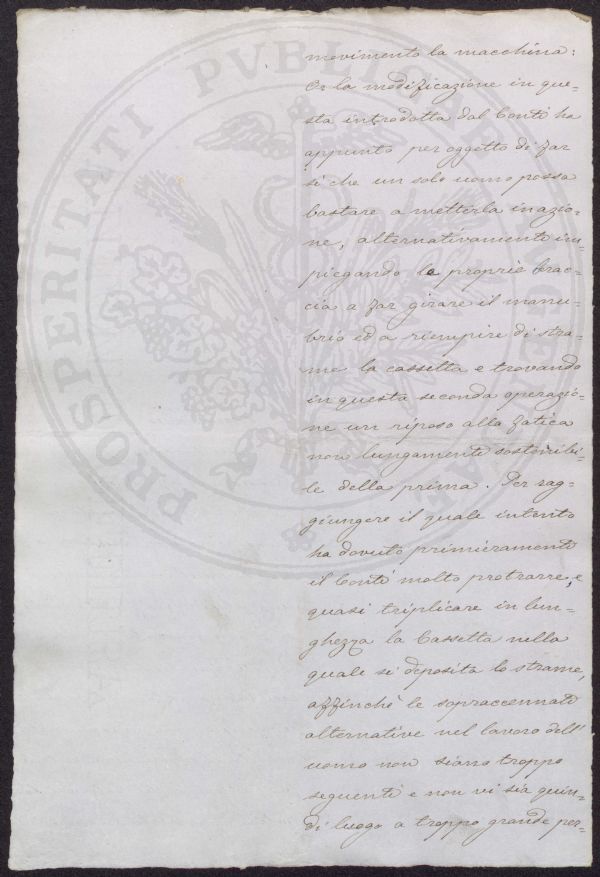 movimento la macchina:
Or la modificazione in que-
sta introdotta dal Conti ha
appunto per oggetto di far
sì che un solo uomo possa
bastare a metterla in azio-
ne, alternativamente im-
piegando le proprie brac-
cia a far girare il manu-
brio ed a riempire di stra-
me la cassetta e trovando
in questa seconda operazio-
ne un riposo alla fatica
non lungamente sostenibi-
le della prima. Per rag-
giungere il quale intento
ha dovuto primieramente
il Conti molto protrarre, e
quasi triplicare in lun-
ghezza la Cassetta nella
quale si deposita lo strame,
affinchè le sopraccennate
alternative nel lavoro dell'
uomo non siano troppo
seguenti e non vi sia quin-
di luogo a troppo grande per-
PROSPERITATI PVBLICAE